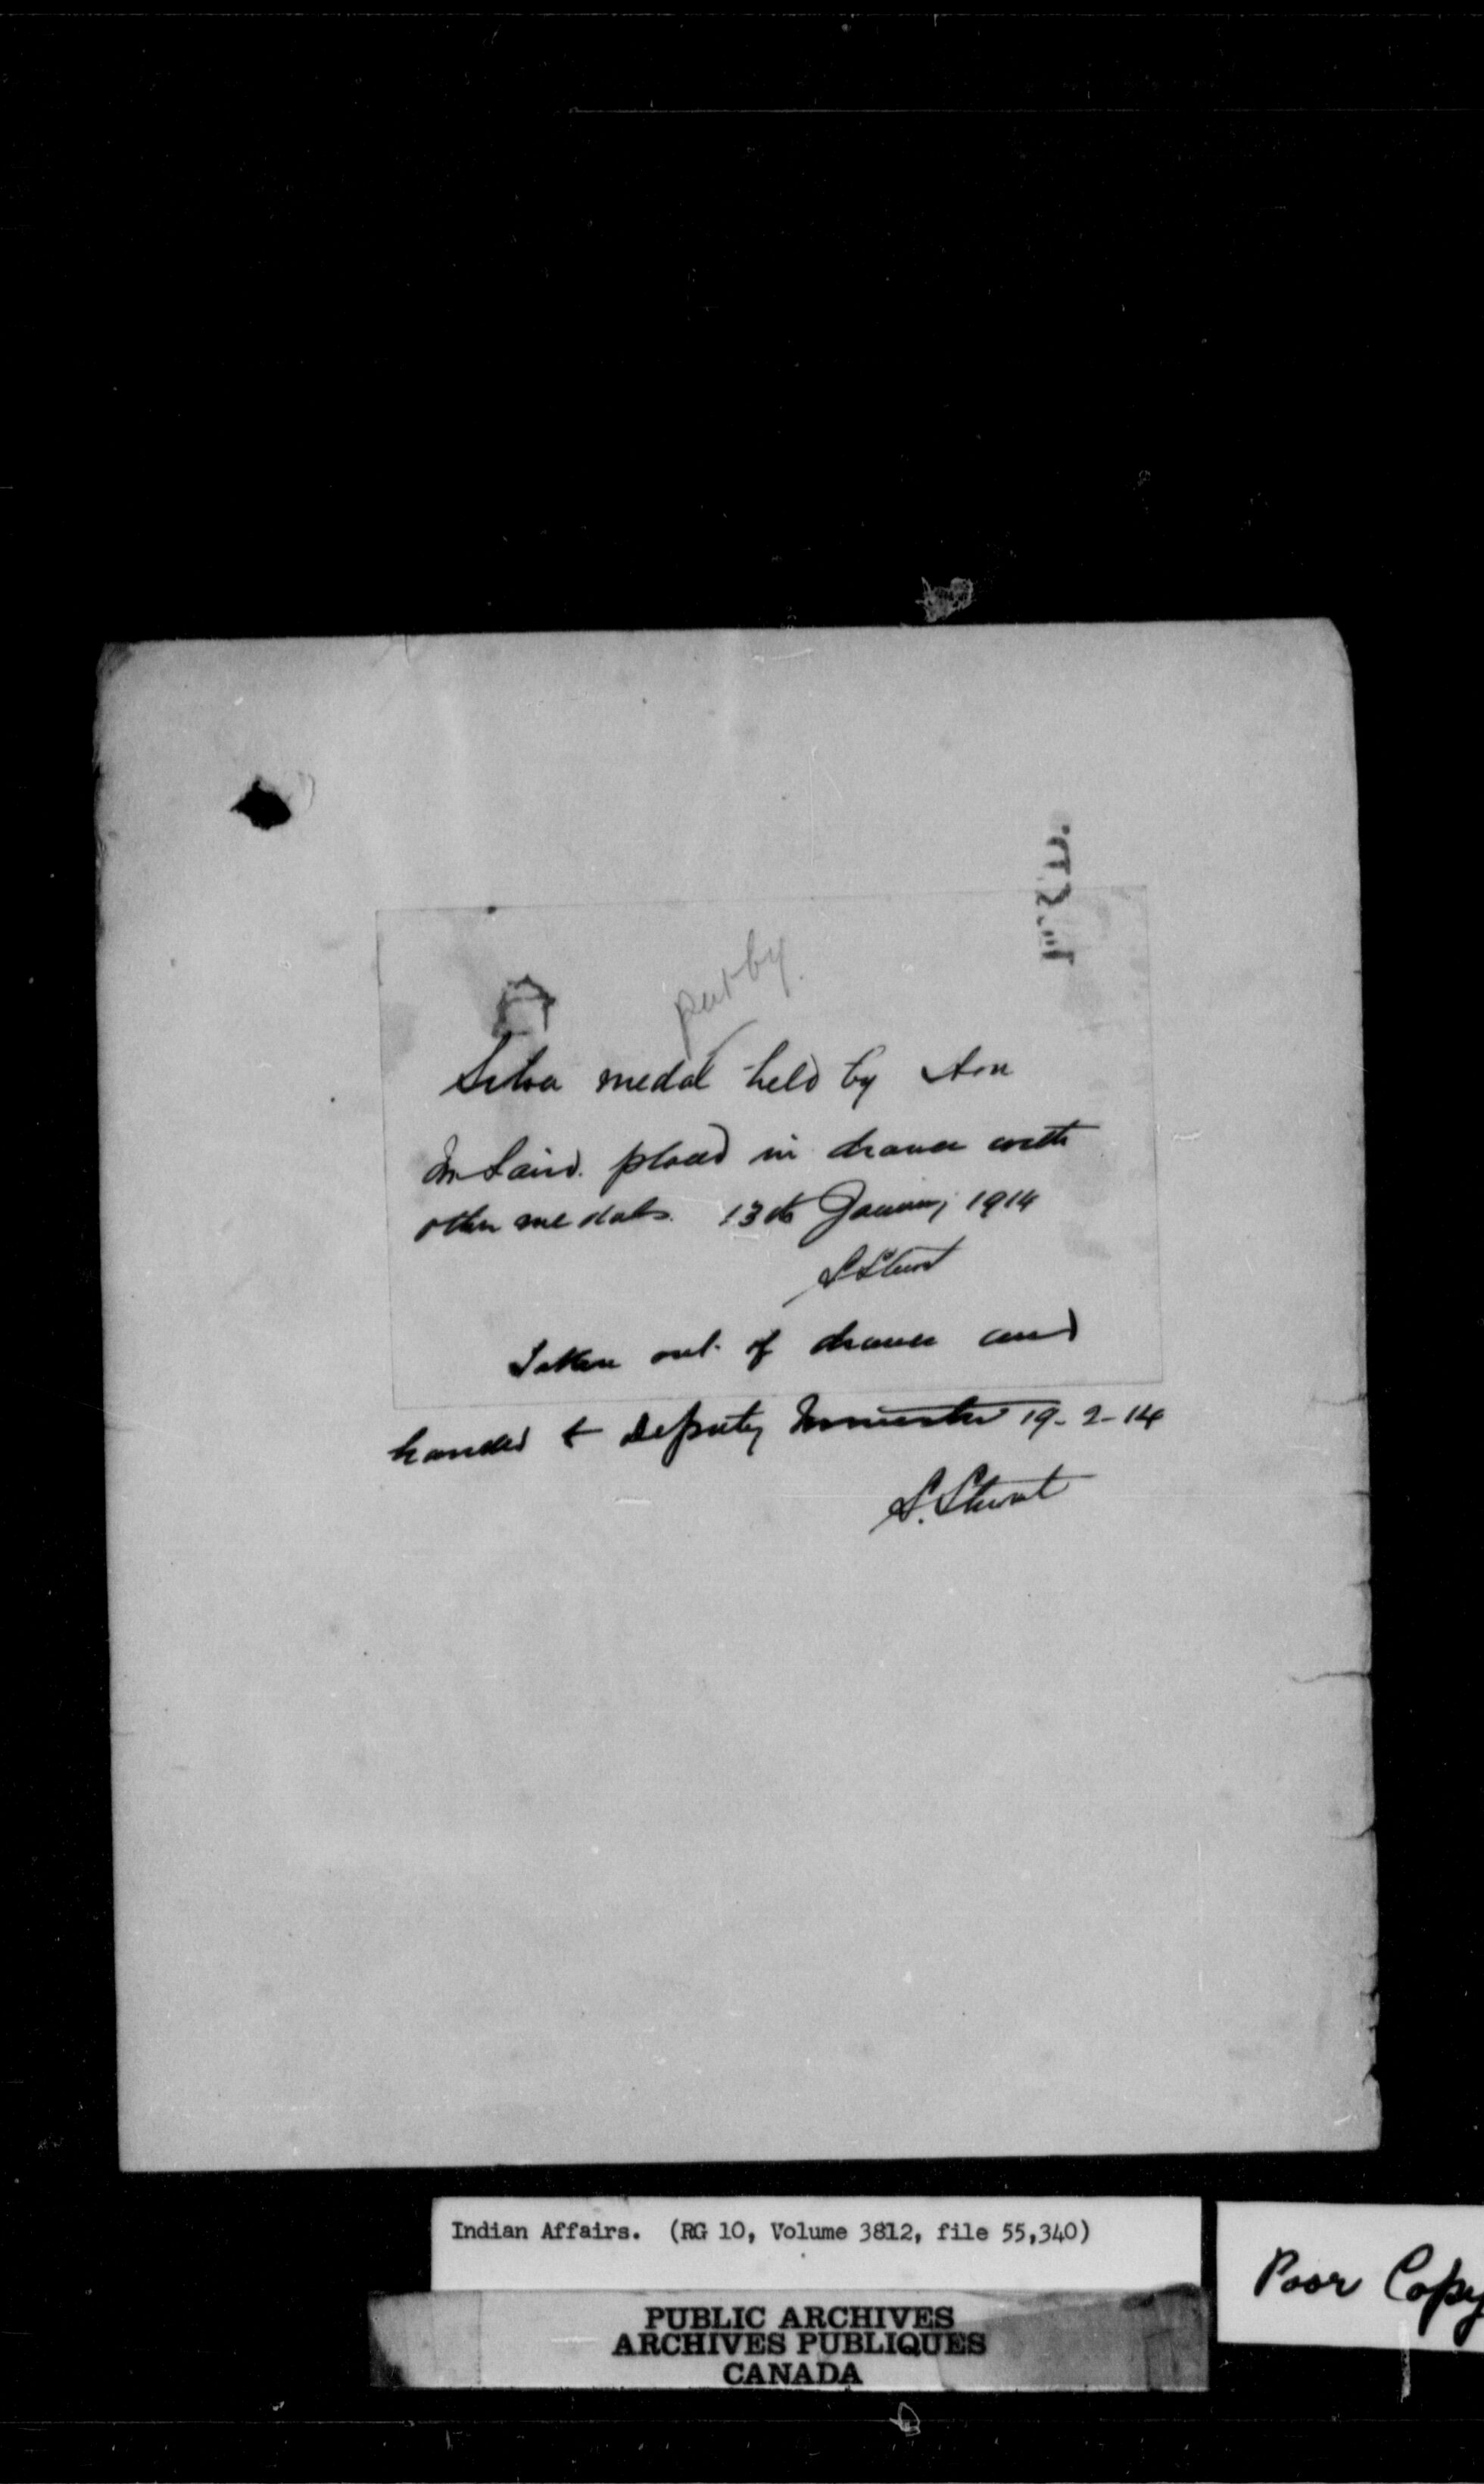 put by.
Silver medal held by Hon
Mr Laird. placed in drawer with
other medals. 13th January 1914
S Stewart
Taken out of drawer and
handed to Deputy Minister 19-2-14
S. Stewart
Indian Affairs. (RG 10, Volume 3812, file 55,340)
PUBLIC ARCHIVES
ARCHIVES PUBLIQUES
CANADA
Poor Copy